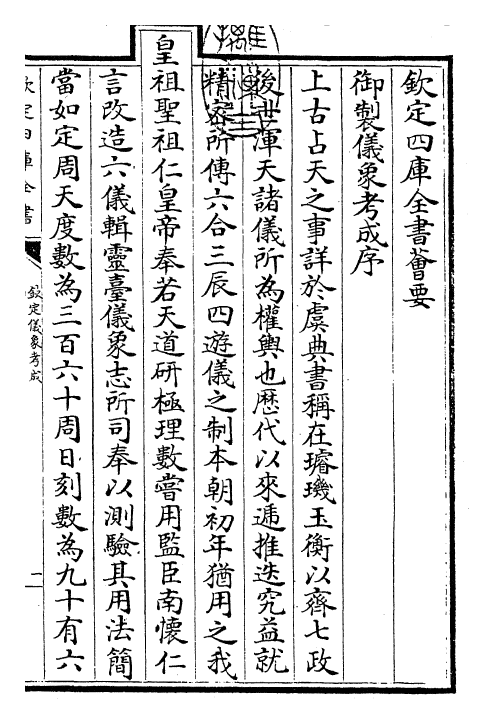 欽定四庫全書薈要
御製儀象考成序
上古占天之事詳於虞典書稱在璿璣玉衡以齊七政
後世渾天諸儀所為權輿也歴代以來遞推迭究益就
精密所傳六合三辰四遊儀之制本朝初年猶用之我
皇祖聖祖仁皇帝奉若天道研極理數嘗用監臣南懷仁
言改造六儀輯靈臺儀象志所司奉以測驗其用法簡
當如定周天度數為三百六十周日刻數為九十有六
欽定四庫全書
欽定儀象考成
一